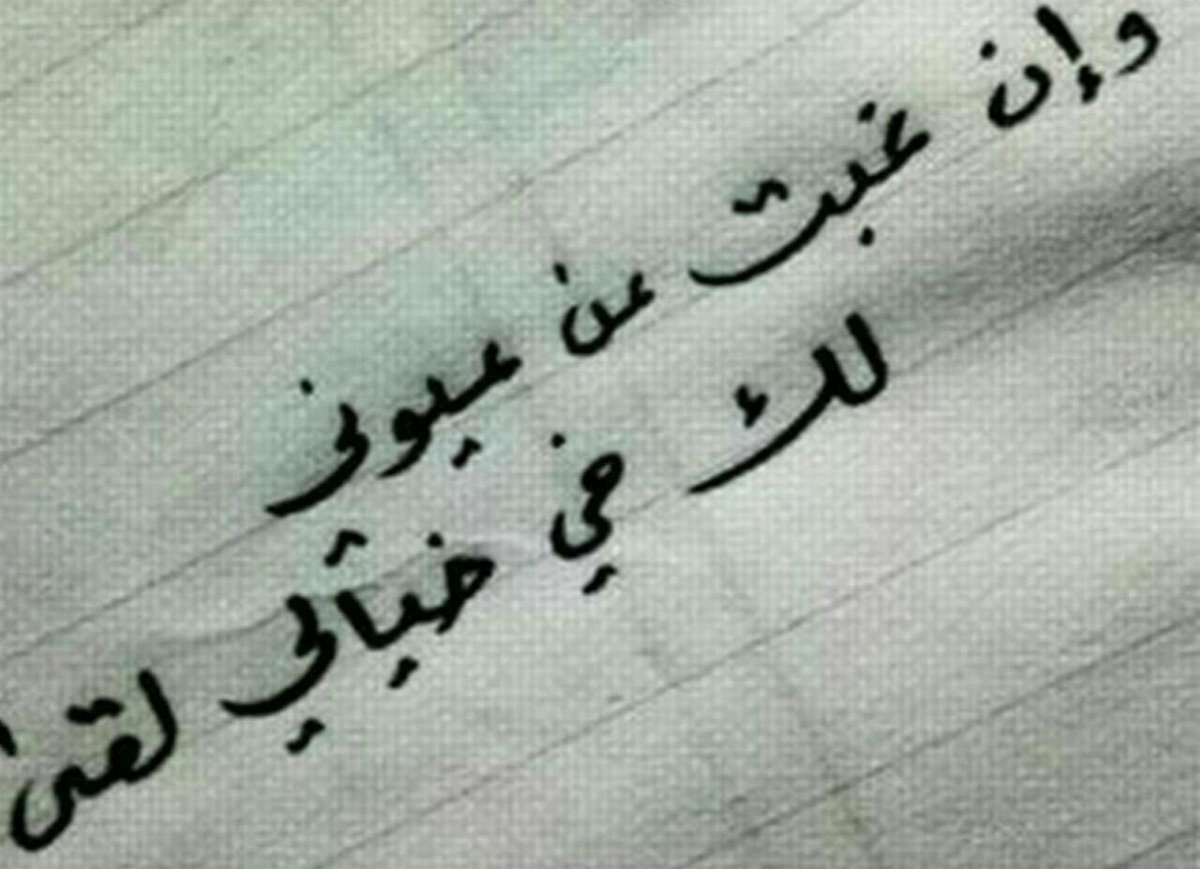 وإن غبت عن عيوني
لك في خيالي لقى